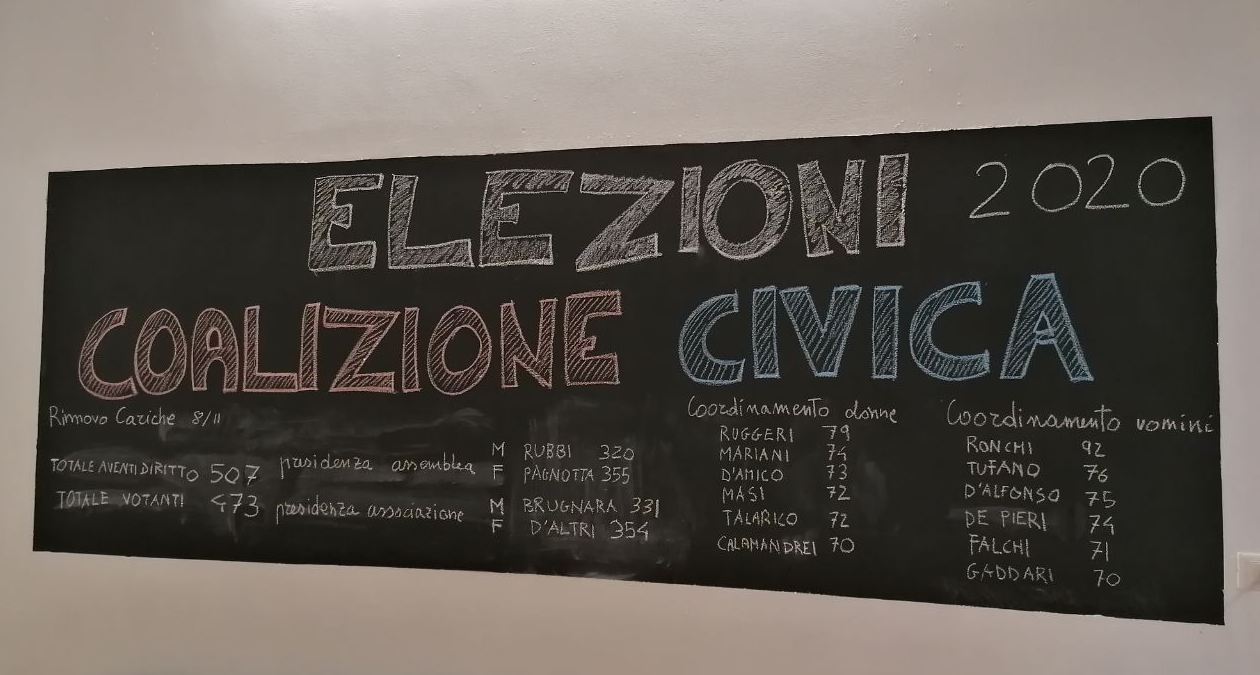 ELEZIONI 2020
COALIZIONE CIVICA
Rinnovo Cariche 8/11
TOTALE AVENTI DIRITTO 507
TOTALE VOTANTI 473
presidenza assemblea
M RUBBI 320
F PAGNOTTA 355
presidenza associazione
M BRUGNARA 331
F D'ALTRI 354
Coordinamento donne
RUGGERI 79
MARIANI 74
D'AMICO 73
MASI 72
TALARICO 72
CALAMANDREI 70
Coordinamento uomini
RONCHI 92
TUFANO 76
D'ALFONSO 75
DE PIERI 74
FALCHI 71
GADDARI 70